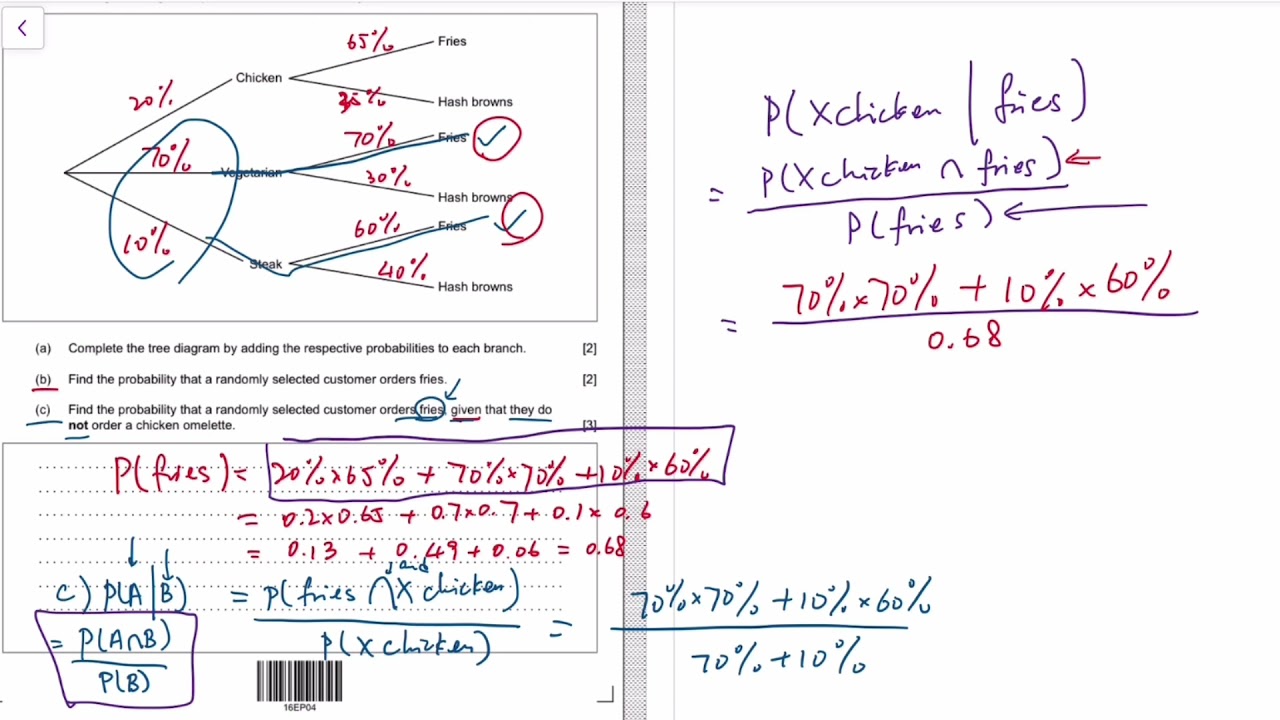 65% Fries
20% Chicken
35% Hash browns
70% Fries ✓
70% Vegetarian
30% Hash browns
60% Fries ✓
10% Steak
40% Hash browns
(a) Complete the tree diagram by adding the respective probabilities to each branch. [2]
(b) Find the probability that a randomly selected customer orders fries. [2]
(c) Find the probability that a randomly selected customer orders fries, given that they do
not order a chicken omelette. [3]
P(fries) = 20%×65% + 70%×70% + 10%×60%
= 0.2×0.65 + 0.7×0.7 + 0.1×0.6
= 0.13 + 0.49 + 0.06 = 0.68
and
c) P(A|B) = P(fries ∩ X chicken) = 70%×70% + 10%×60%
= P(A∩B) P(X chicken) 70% + 10%
P(B)
16EP04
P(X chicken | fries)
= P(X chicken ∩ fries) ←
P(fries) ←
= 70%×70% + 10%×60%
0.68